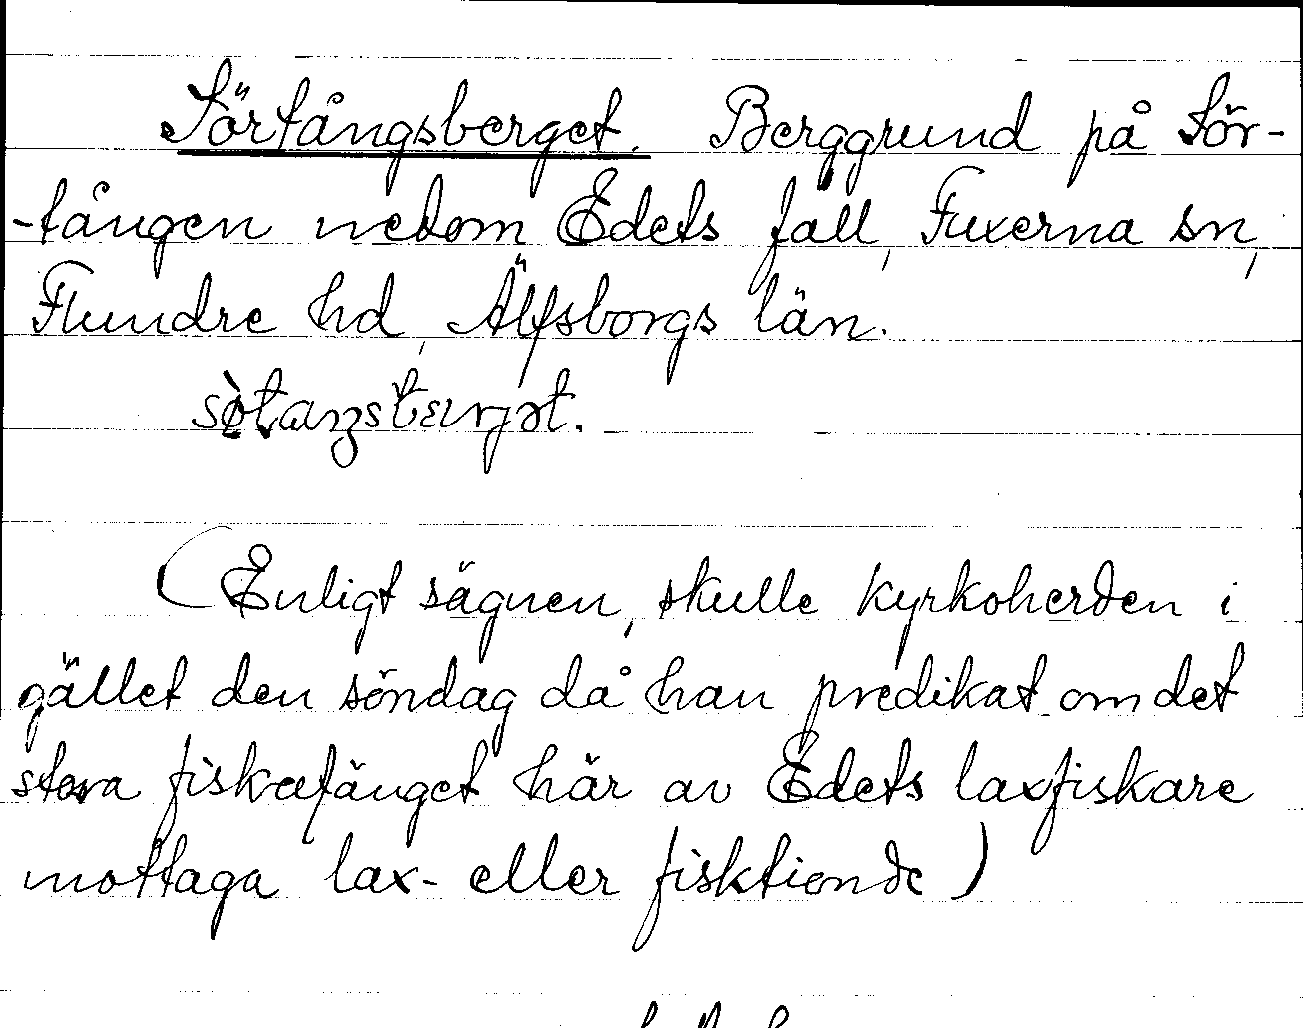 Sörtångsberget. Berggrund på Sör-
-tången nedom Edets fall, Fuxerna sn,
Flundre hd, Älfsborgs län.
(Enligt sägnen, skulle kyrkoherden i
gället den söndag då han predikat om det
stora fiskafänget här av Edets laxfiskare
mottaga lax- eller fisktionde)